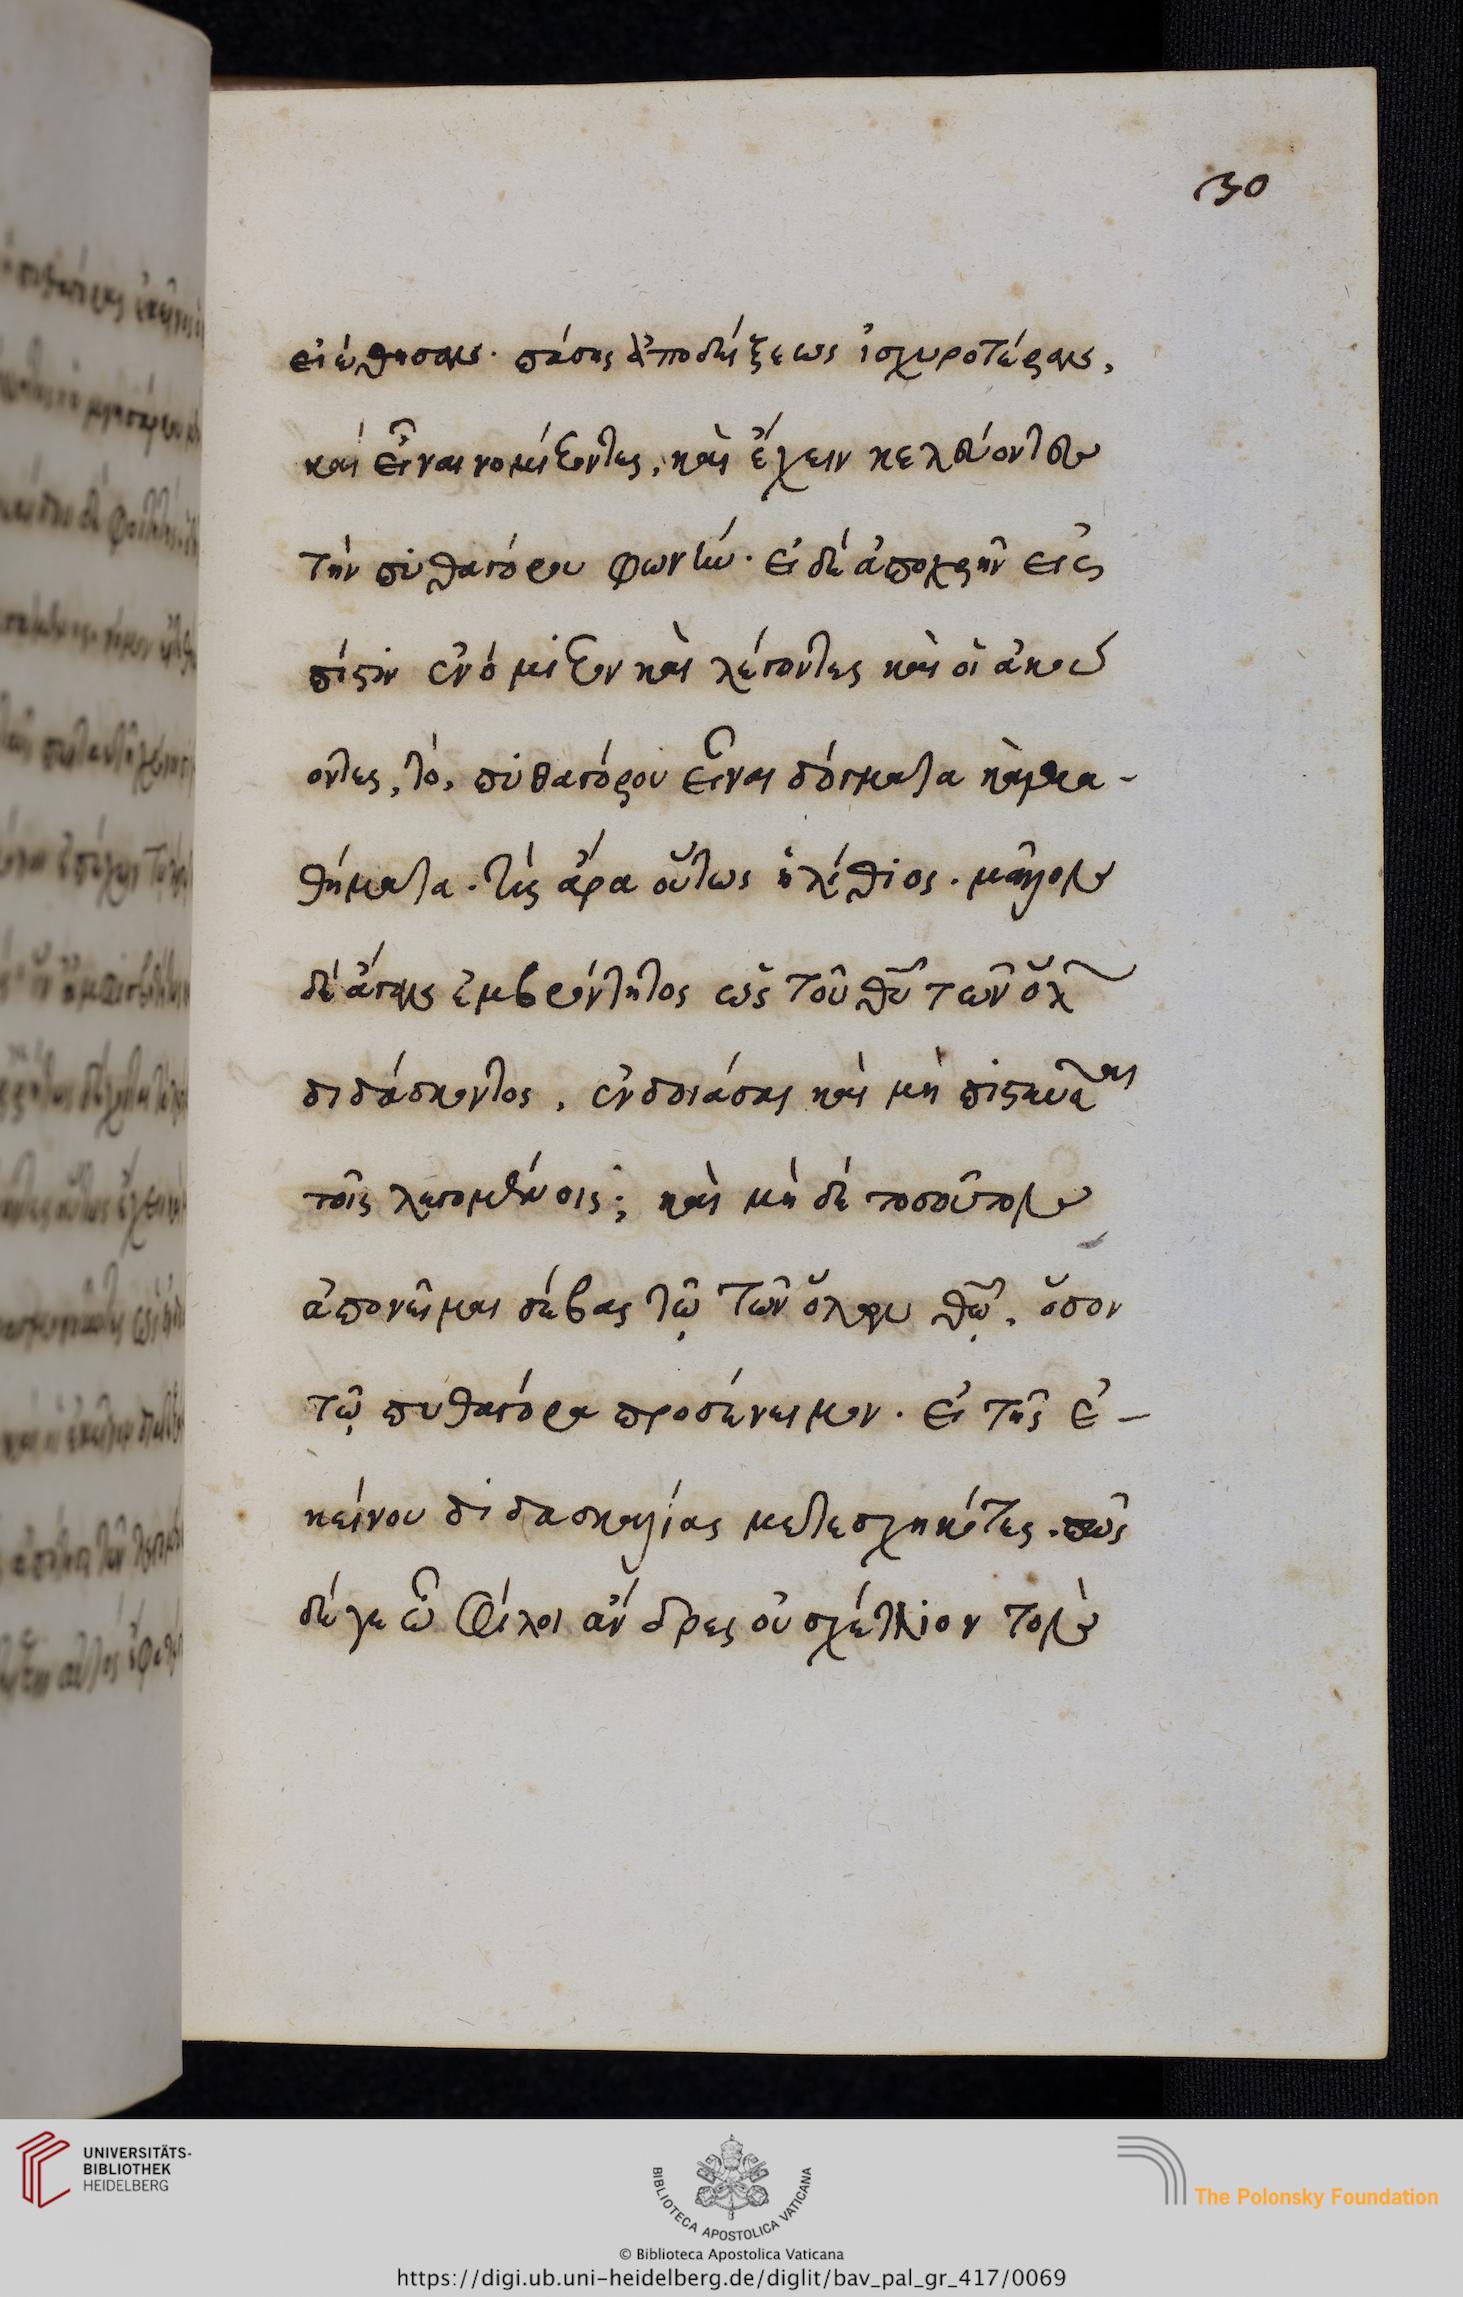 30
εἰώθησαν· πάσης ἀποδείξεως ἰσχυροτέραν,
καί εἶναι νομίζοντες, καὶ ἔχειν κελεύοντες
τήν πυθαγόρου φωνήν· εἰ δέ ἀποχρῆν εἰς
πίστιν ἐνόμιζον καὶ λέγοντες καὶ οἱ ἀκού
οντες, τό, πυθαγόρου εἶναι δόγματα καὶ μα-
θήματα. τίς ἄρα οὕτως ἠλίθιος. μᾶλλον
δέ ἄγαν ἐμβρόντητος ὡς τοῦ θῦ τῶν ὅλ
διδάσκοντος, ἐνδοιάσαι καὶ μὴ πιστεῦσαι
τοῖς λεγομένοις; καὶ μὴ δέ τοσοῦτον
ἀπονεῖμαι σέβας τῷ τῶν ὅλων θῷ, ὅσον
τῷ πυθαγόρα προσένειμον. οἱ τῆς ἐ-
κείνου διδασκαλίας μετεσχηκότες. πῶς
δέ γε ὦ φίλοι ἄνδρες οὐ σχέτλιον τὸν
UNIVERSITÄTS-
BIBLIOTHEK
HEIDELBERG
BIBLIOTECA APOSTOLICA VATICANA
The Polonsky Foundation
© Biblioteca Apostolica Vaticana
https://digi.ub.uni-heidelberg.de/diglit/bav_pal_gr_417/0069